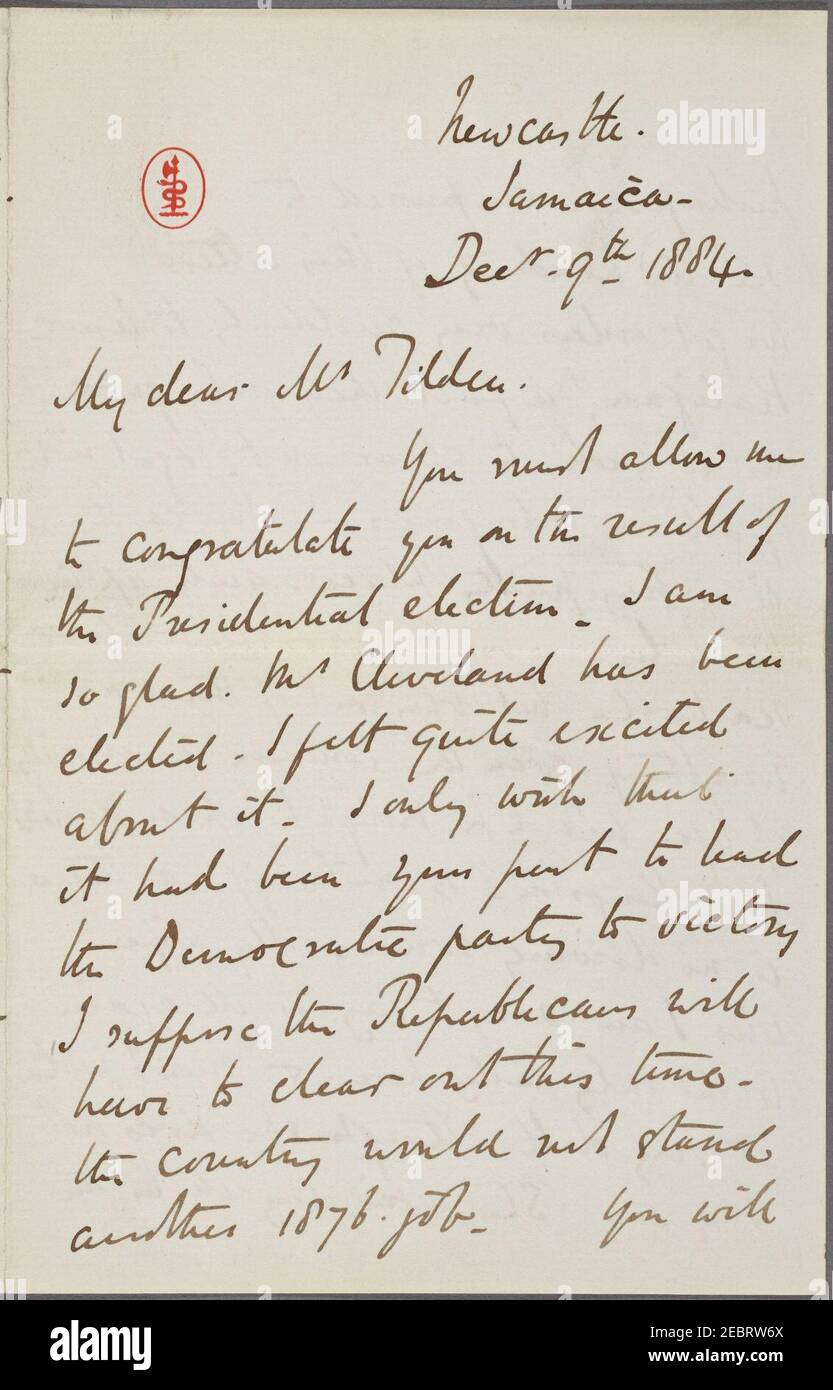 Newcastle.
Jamaica-
Decr. 9th 1884.
My dear Mr Tilden.
You must allow me
to congratulate you on the result of
the Presidential election_ I am
so glad. Mr Cleveland has been
elected. I felt quite excited
about it_ I only wish that
it had been your part to lead
the Democratic party to victory
I suppose the Republicans will
have to clear out this time-
the country would not stand
another 1876 job_ You will
alamy
Image ID: 2EBRW6X
www.alamy.com